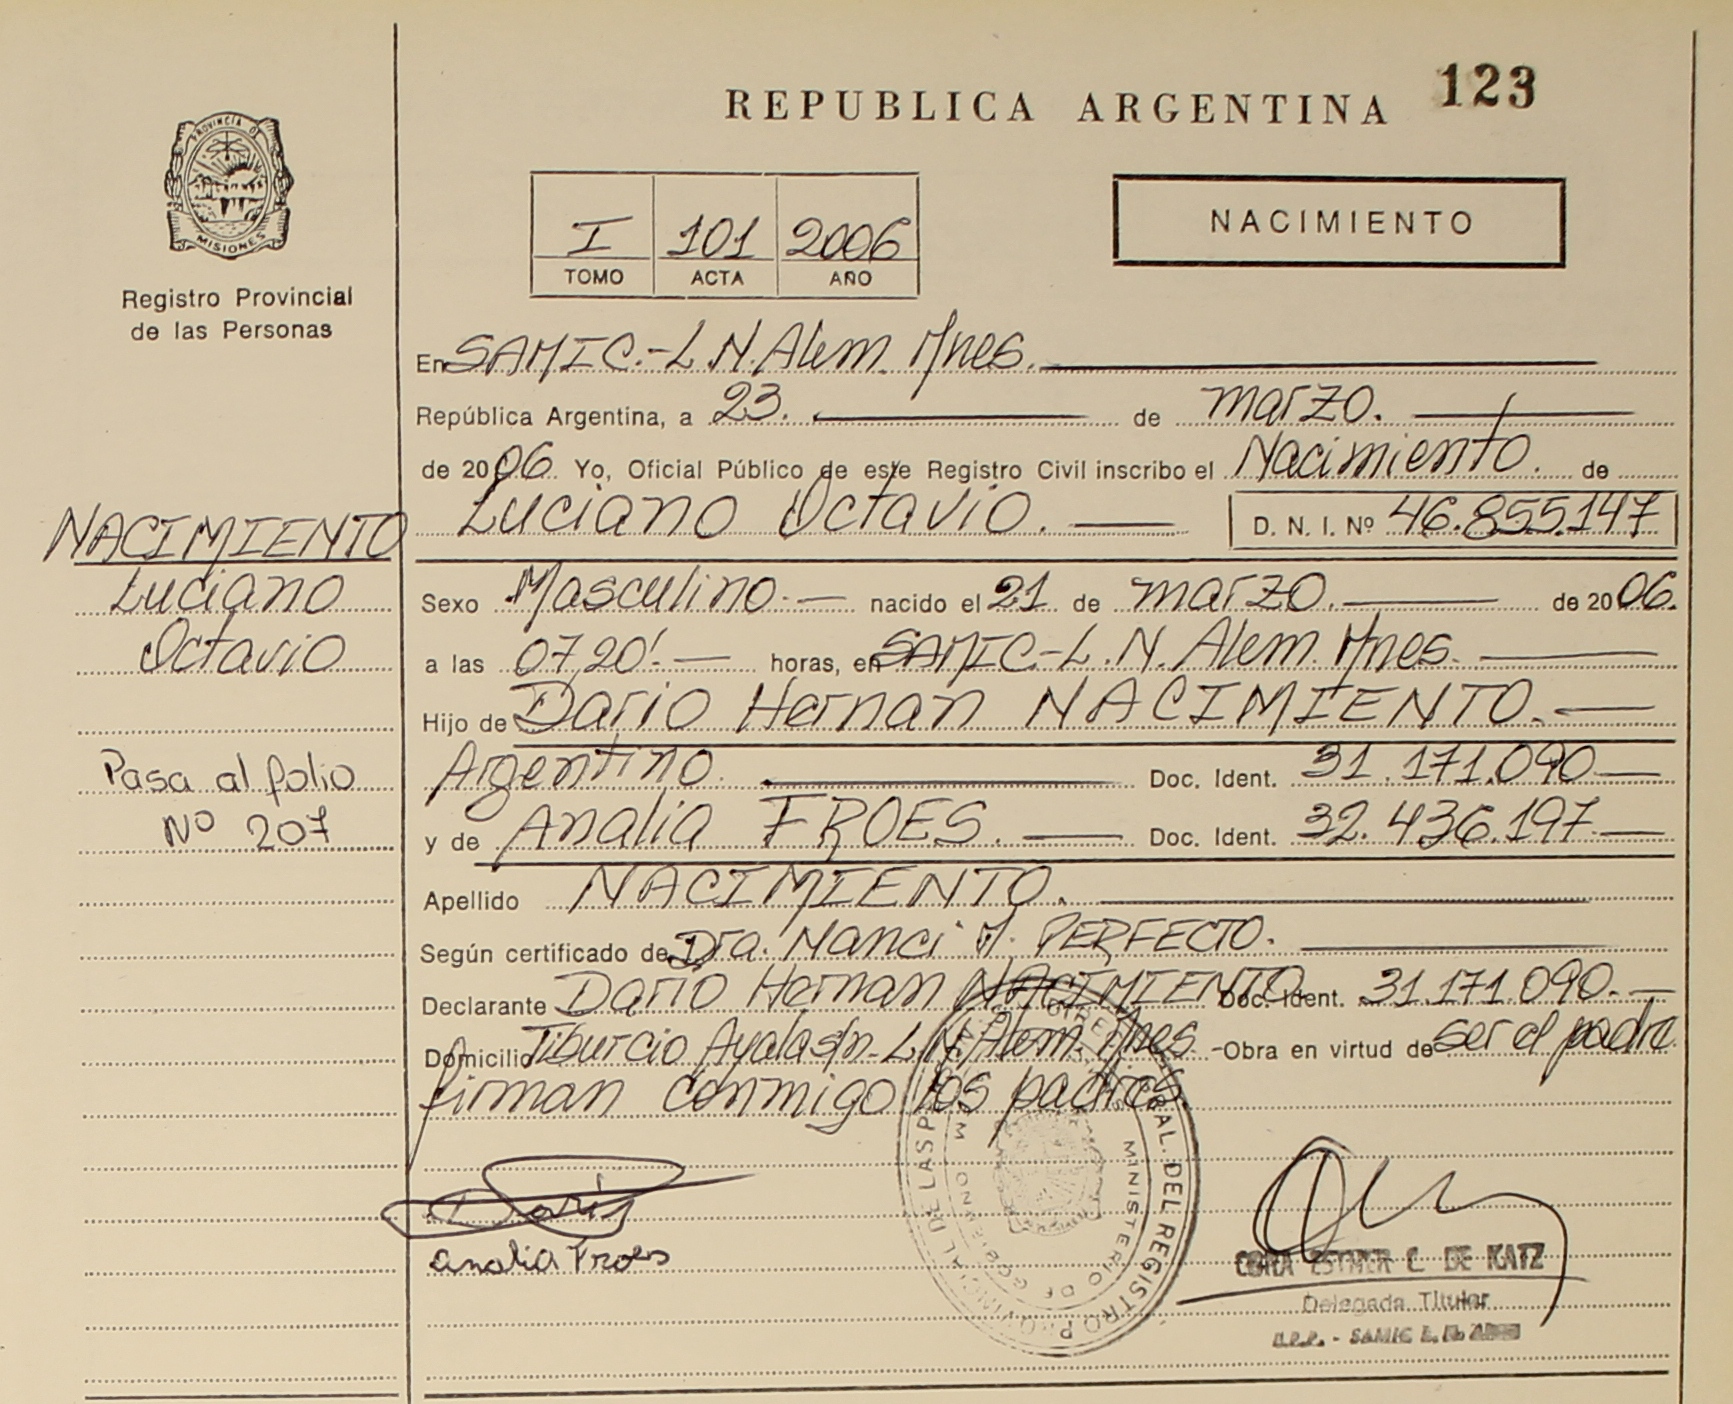 REPUBLICA ARGENTINA 123
PROVINCIA DE
MISIONES
Registro Provincial
de las Personas
I 101 2006
TOMO ACTA AÑO
NACIMIENTO
En SAMIC.-L.N.Alem. Mnes.
República Argentina, a 23. de marzo.
de 2006. Yo, Oficial Público de este Registro Civil inscribo el Nacimiento. de
Luciano Octavio. D. N. I. Nº 46.855.147
Sexo Masculino.- nacido el 21 de marzo. de 2006.
a las 07,20'.- horas, en SAMIC-L.N. Alem. Mnes.
Hijo de Dario Hernan NACIMIENTO.-
Argentino. Doc. Ident. 31.171.090-
y de Analia FROES. Doc. Ident. 32.436.197-
Apellido NACIMIENTO.
Según certificado de Dra. Nanci M. PERFECTO.
Declarante Dario Hernan NACIMIENTO Doc. Ident. 31.171.090.-
Domicilio Tiburcio Ayala s/n- L.N. Alem. Mnes - Obra en virtud de ser el padre
firman conmigo los padres.
NACIMIENTO
Luciano
Octavio
Pasa al folio
Nº 207
Dario
analia Froes
PROVINCIAL DE LAS
GRAL. DEL REGISTRO
MINISTERIO DE GOBIERNO
ESTHER C. DE KATZ
Delegada Titular
R.P.P. - SAMIC L. N. ALEM